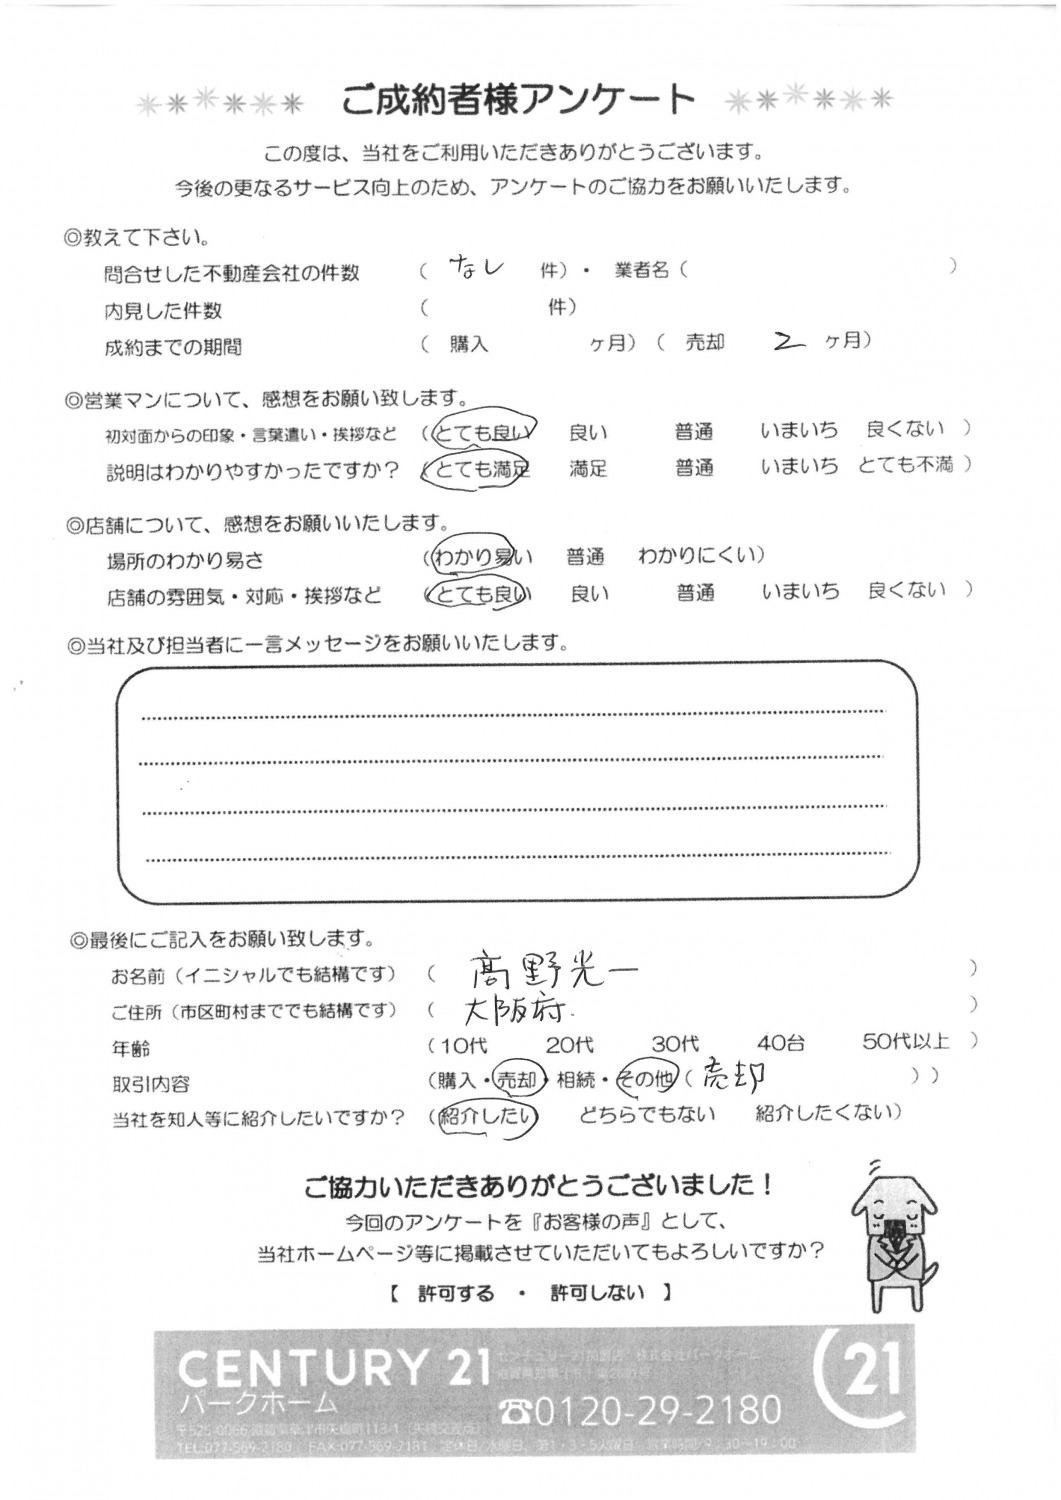 ご成約者様アンケート
この度は、当社をご利用いただきありがとうございます。
今後の更なるサービス向上のため、アンケートのご協力をお願いいたします。
◎教えて下さい。
問合せした不動産会社の件数 ( なし 件)・ 業者名 ( )
内見した件数 ( 件)
成約までの期間 ( 購入 ヶ月) ( 売却 2 ヶ月)
◎営業マンについて、感想をお願い致します。
初対面からの印象・言葉遣い・挨拶など (とても良い 良い 普通 いまいち 良くない )
説明はわかりやすかったですか? (とても満足 満足 普通 いまいち とても不満 )
◎店舗について、感想をお願いいたします。
場所のわかり易さ (わかり易い 普通 わかりにくい)
店舗の雰囲気・対応・挨拶など (とても良い 良い 普通 いまいち 良くない )
◎当社及び担当者に一言メッセージをお願いいたします。
◎最後にご記入をお願い致します。
お名前(イニシャルでも結構です) ( 髙野光一 )
ご住所(市区町村まででも結構です) ( 大阪府. )
年齢 (10代 20代 30代 40台 50代以上 )
取引内容 (購入・売却・相続・その他( 売却 ) )
当社を知人等に紹介したいですか? (紹介したい どちらでもない 紹介したくない)
ご協力いただきありがとうございました!
今回のアンケートを『お客様の声』として、
当社ホームページ等に掲載させていただいてもよろしいですか?
【 許可する ・ 許可しない 】
CENTURY 21 センチュリー21加盟店 株式会社パークホーム
パークホーム
☎0120-29-2180
21
〒525-0066 滋賀県草津市矢橋町113-1
TEL:077-569-2180 FAX:077-569-2181 定休日/水曜日、第1・3・5火曜日 営業時間/9:30~19:00